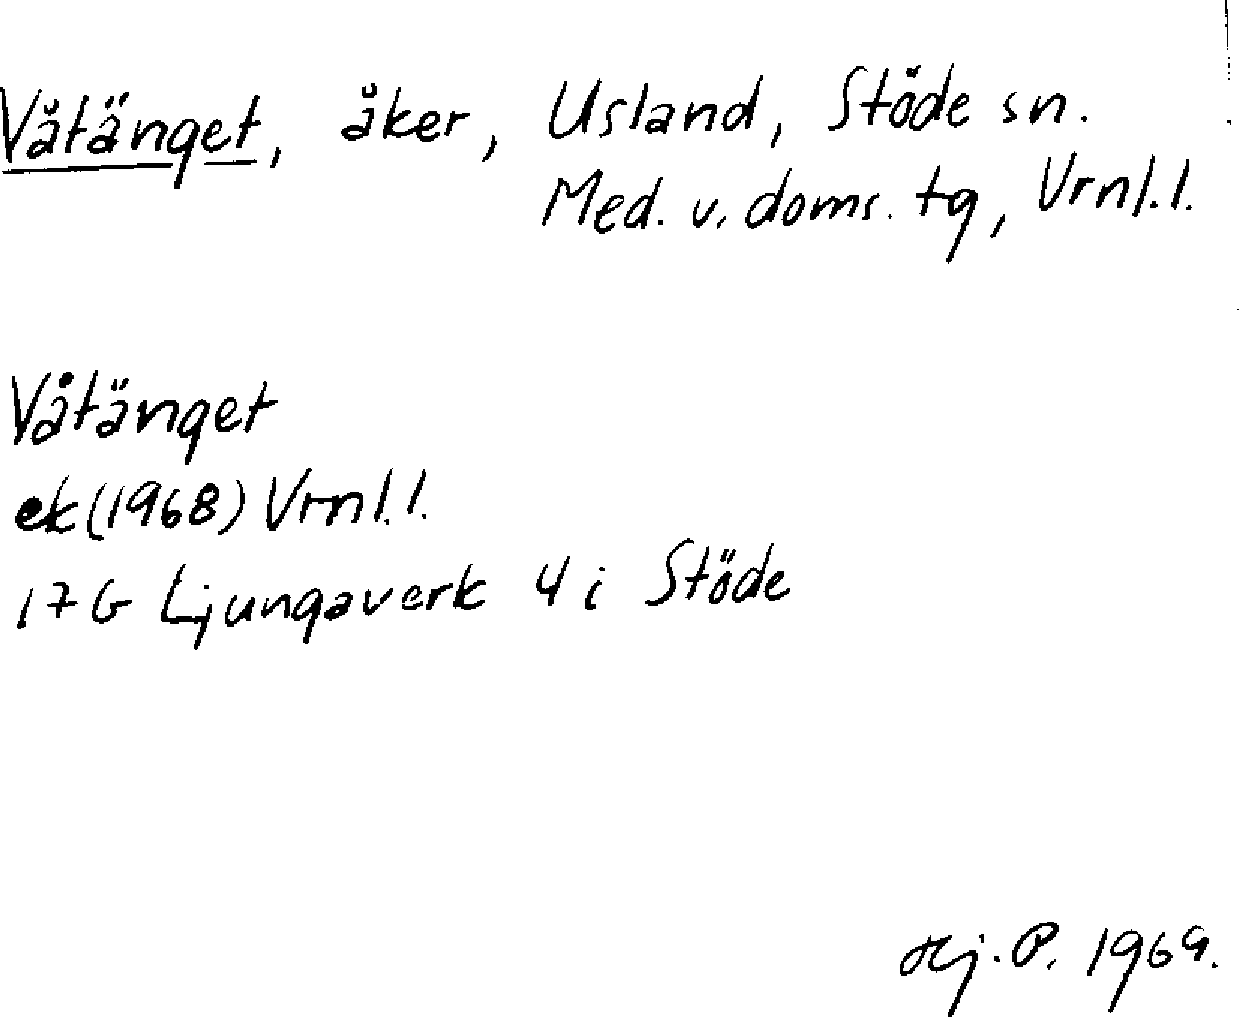 Våtänget, åker, Usland, Stöde sn.
Med. v. doms. tg, Vrnl.l.
Våtänget
ek (1968) Vrnl.l.
17G Ljungaverk 4 i Stöde
Hj. P. 1969.